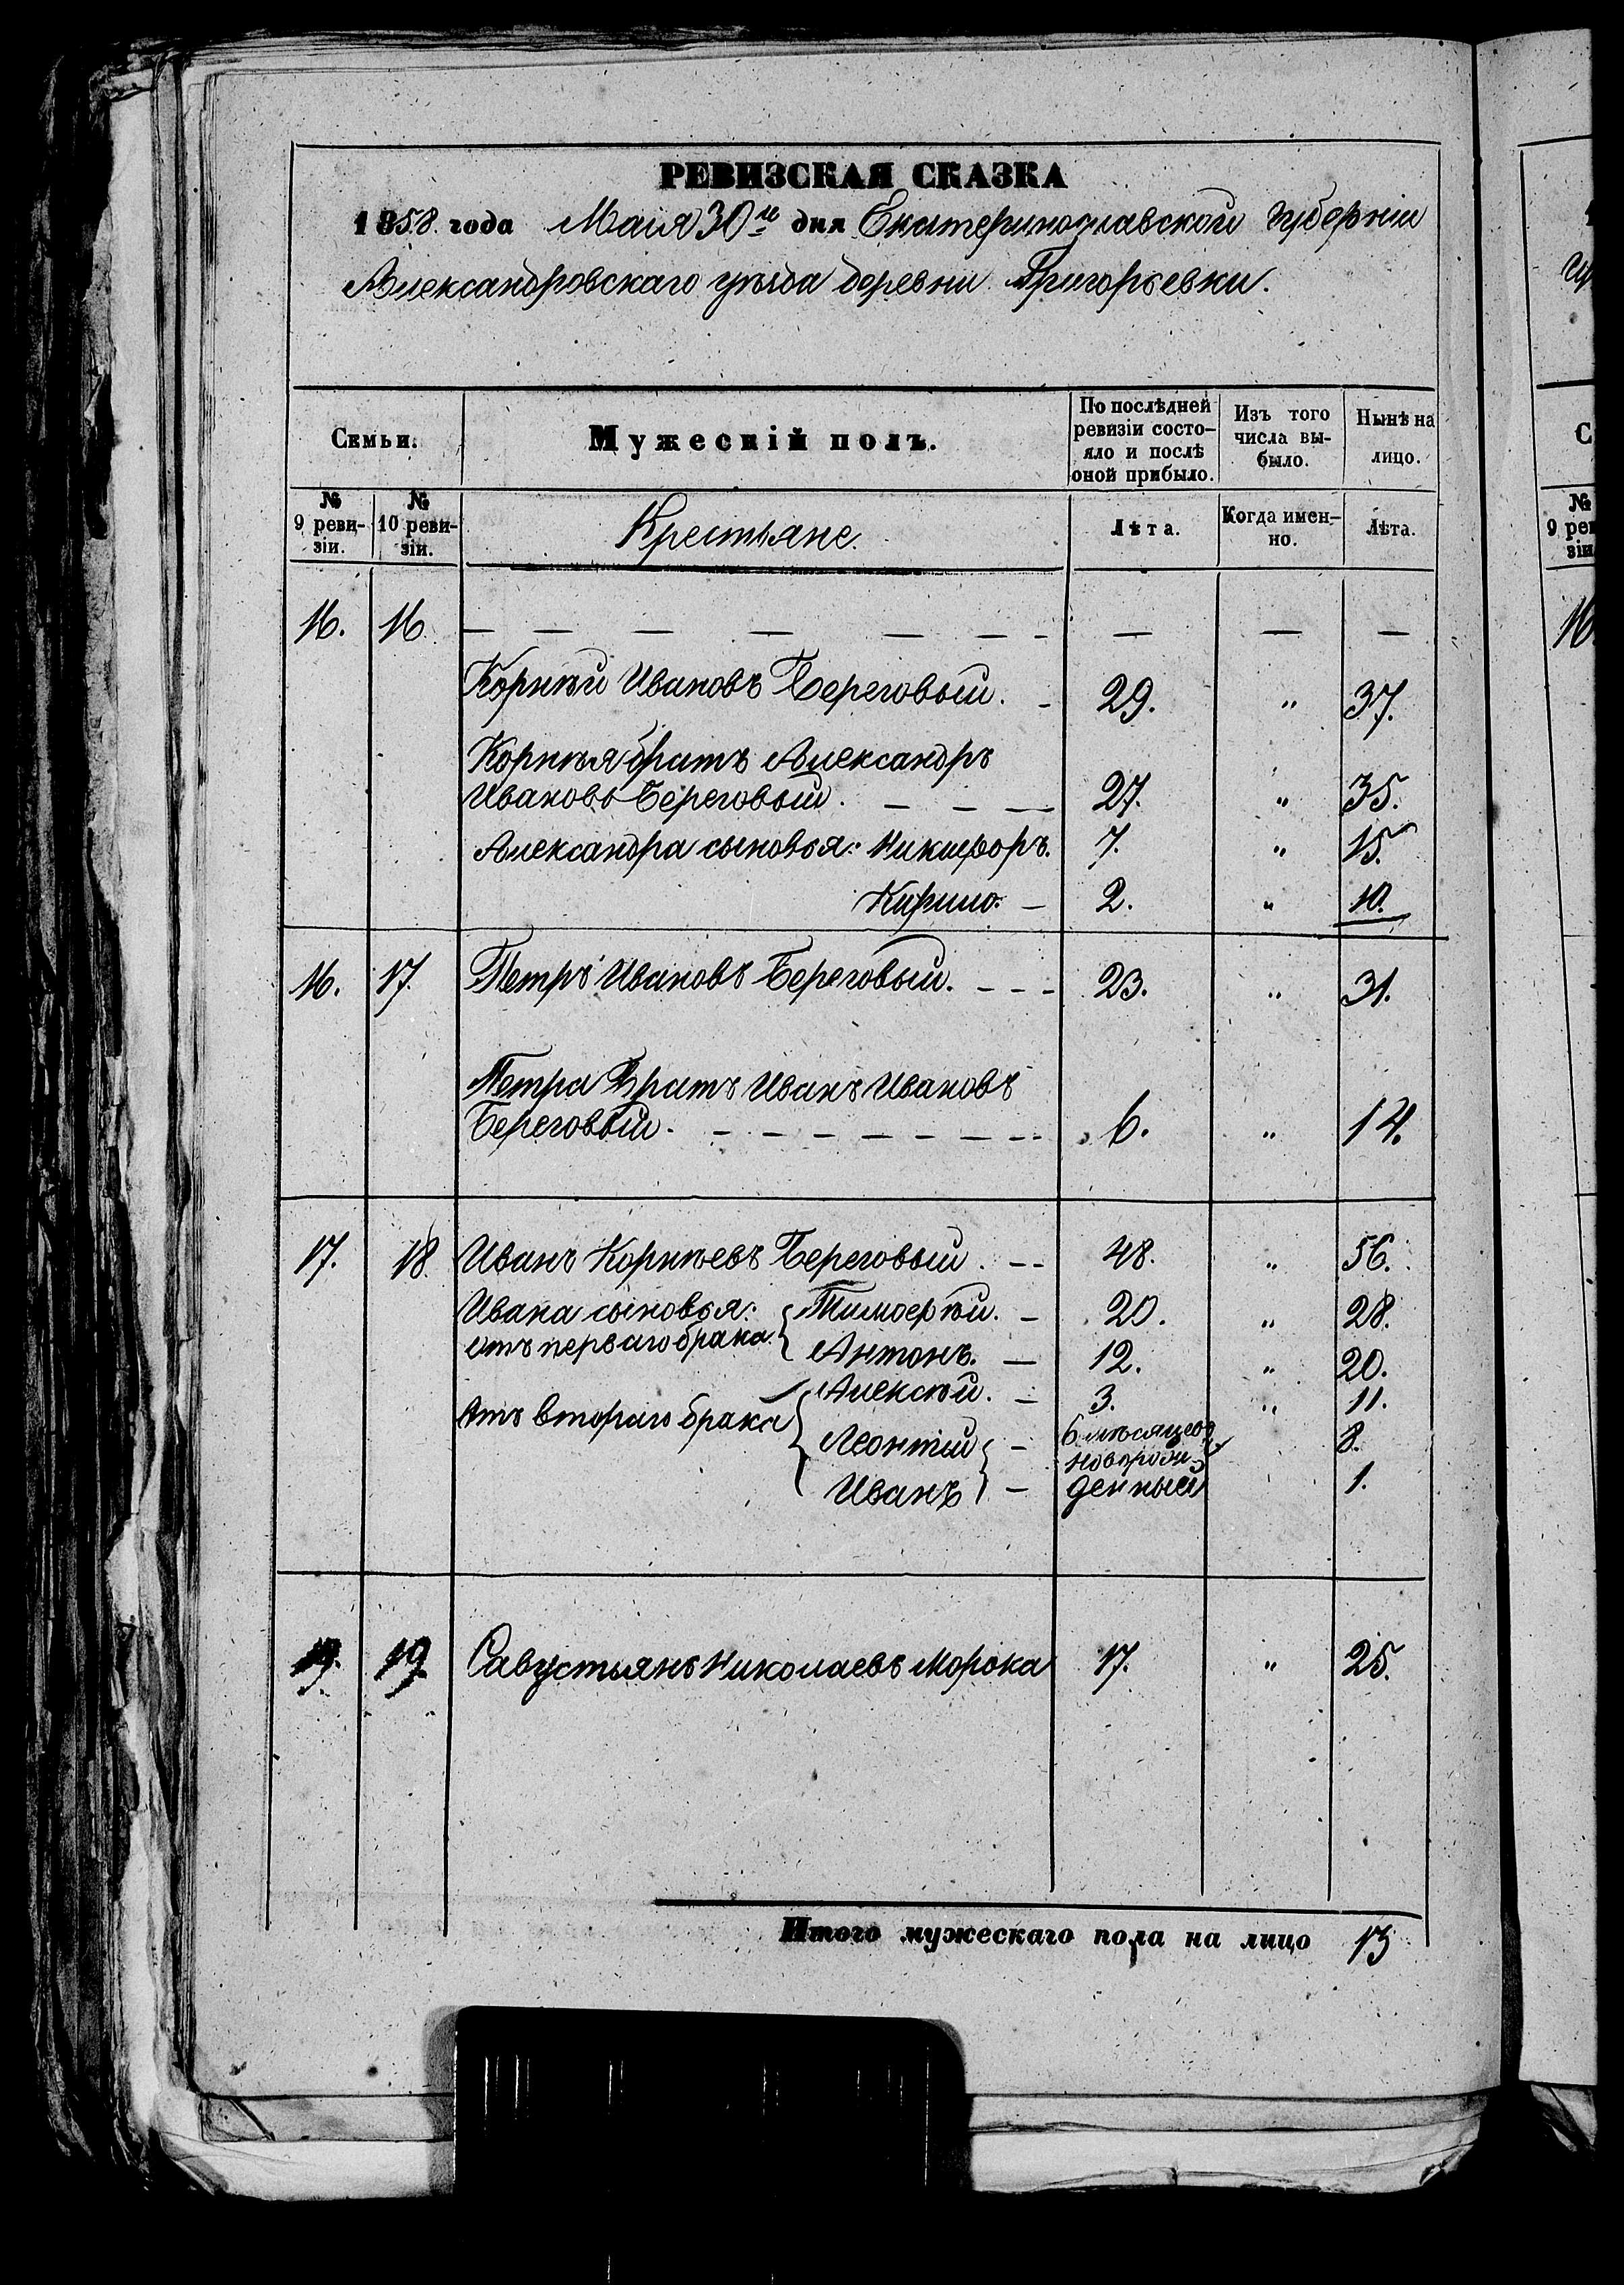 РЕВИЗСКАЯ СКАЗКА
1858. года Маія 30го дня Екатеринославской губерніи
Александровскаго уѣзда деревни Григорьевки.
Семьи.
Мужескій полъ.
По послѣдней
ревизіи состо-
яло и послѣ
оной прибыло.
Изъ того
числа вы-
было.
Нынѣ на
лицо.
№
9 реви-
зіи.
№
10 реви-
зіи.
Крестьяне.
Лѣта.
Когда имен-
но.
Лѣта.
16. 16 — — — — — — - — — —
Корнѣй Ивановъ Береговый. - 29. " 37.
Корнѣя братъ Александръ
Ивановъ Береговый. — — — 27. " 35.
Александра сыновья: Никифоръ. 7. " 15.
Кирило. — 2. " 10.
16. 17. Петръ Ивановъ Береговый. - - - 23. " 31.
Петра Братъ Иванъ Ивановъ
Береговый. - - - - - - - - 6. " 14.
17. 18. Иванъ Корнѣевъ Береговый. - - 48. " 56.
Ивана сыновья: Тимофѣй. - 20. " 28.
отъ перваго брака. Антонъ. — 12. " 20.
Алексѣй. - 3. " 11.
Отъ втораго брака
Леонтій - 6 мѣсяцевъ 8.
новорож-
Иванъ - денный 1.
19. 19. Савустьянъ Николаевъ Морока 17. " 25.
Итого мужескаго пола на лицо 13
С
№
9 рев
зіи
16